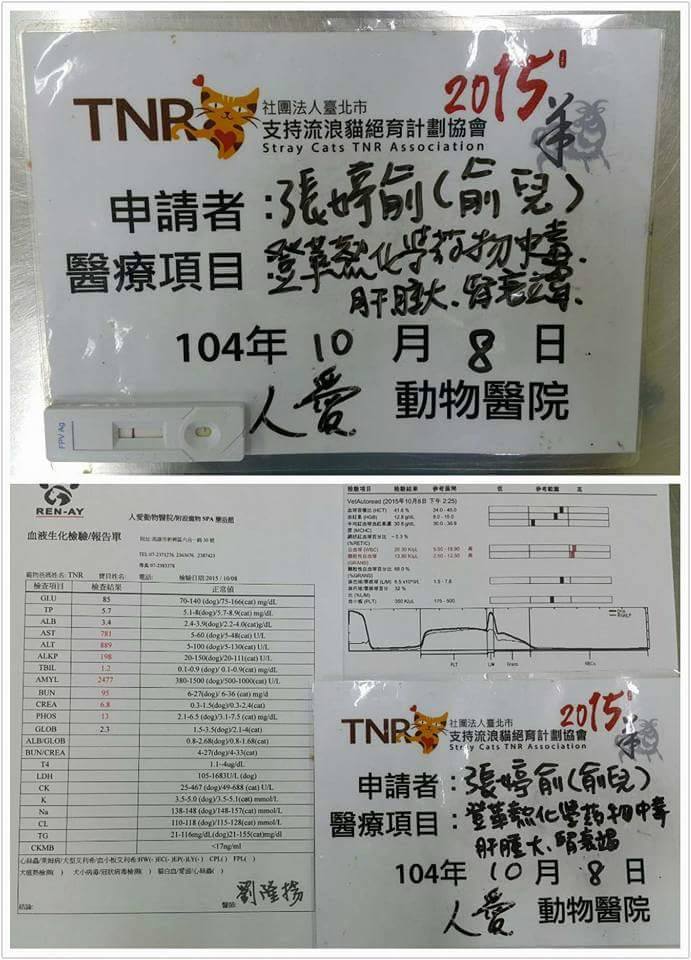 TNR
社團法人臺北市
支持流浪貓絕育計劃協會
Stray Cats TNR Association
2015
羊
申請者:張婷俞(俞兒)
醫療項目:登革熱化學药物中毒.
肝腫大.腎衰竭.
104年 10 月 8 日
人愛 動物醫院
FPV Ag
REN-AY
人愛動物醫院/附設寵物 SPA 樂活館
血液生化檢驗/報告單
寵物爸媽姓名:TNR 寶貝姓名: 電話: 檢驗日期:2015 / 10/08
檢查項目 檢查結果 正常值
GLU 85 70-140 (dog)/75-166(cat) mg/dL
TP 5.7 5.1-8(dog)/5.7-8.9(cat) mg/dL
ALB 3.4 2.4-3.9(dog)/2.2-4.0(cat)g/dL
AST 781 5-60 (dog)/5-48(cat) U/L
ALT 889 5-100 (dog)/5-130(cat) U/L
ALKP 198 20-150(dog)/20-111(cat) U/L
TBIL 1.2 0.1-0.9 (dog)/ 0.1-0.9(cat) mg/dL
AMYL 2477 380-1500 (dog)/500-1000(cat) U/L
BUN 95 6-27(dog)/ 6-36 (cat) mg/d
CREA 6.8 0.3-1.5(dog)/0.3-2.4(cat)
PHOS 13 2.1-6.5 (dog)/3.1-7.5 (cat) mg/dL
GLOB 2.3 1.5-3.5(dog)/2.1-4(cat)
ALB/GLOB 0.8-2.68(dog)/0.8-1.68(cat)
BUN/CREA 4-27(dog)/4-33(cat)
T4 1.1-4ug/dL
LDH 105-1683U/L (dog)
CK 25-467 (dog)/49-688 (cat) U/L
K 3.5-5.0 (dog)/3.5-5.1(cat) mmol/L
Na 138-148 (dog)/148-157(cat) mmol/L
CL 110-118 (dog)/115-128(cat) mmol/L
TG 21-116mg/dL(dog)21-155(cat)mg/dL
CKMB <17ng/ml
結論: 醫師: 劉隆揚
檢驗項目 檢驗結果 參考區間 低 參考範圍 高
VetAutoread (2015年10月8日 下午 2:25)
血球容積比 (HCT) 41.6 % 24.0 - 45.0
血紅素 (HGB) 12.8 g/dL 8.0 - 15.0
(MCHC) 30.8 g/dL 30.0 - 36.9
(%RETIC)
白血球 (WBC) 20.30 K/μL 5.00 - 18.90 高
(GRANS)
(%GRANS)
血小板 (PLT) 350 K/μL 175 - 500
PLT L/M Grans RBCs
TNR
社團法人臺北市
支持流浪貓絕育計劃協會
Stray Cats TNR Association
2015
羊
申請者:張婷俞(俞兒)
醫療項目:登革熱化學药物中毒
肝腫大.腎衰竭
104年 10 月 8 日
人愛 動物醫院